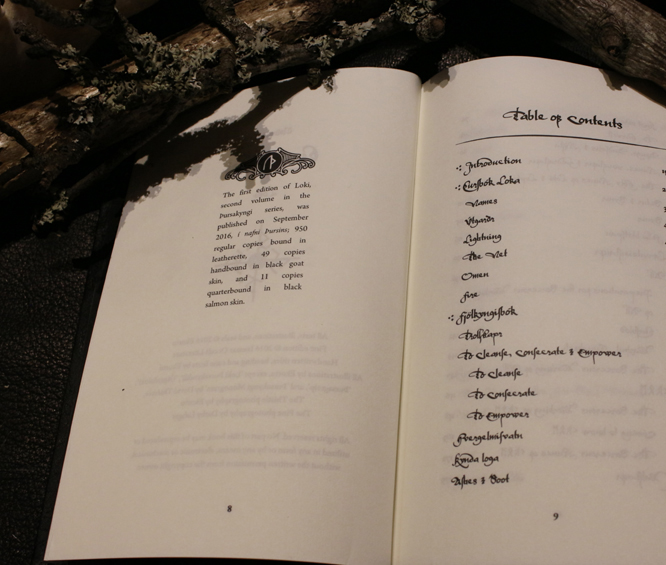 The first edition of Loki,
second volume in the
Þursakyngi series, was
published on September
2016, í nafni Þursins; 950
regular copies bound in
leatherette, 49 copies
handbound in black goat
skin, and 11 copies
quarterbound in black
salmon skin.
8
Table of Contents
Introduction
Loka
Names
Lightning
The Net
Omen
Fire
Fjölkyngisbók
Trolldapr
To Cleanse, Consecrate & Empower
To Cleanse
To Consecrate
To Empower
Hvergelmisvatn
kynda loga
Ashes & Soot
9